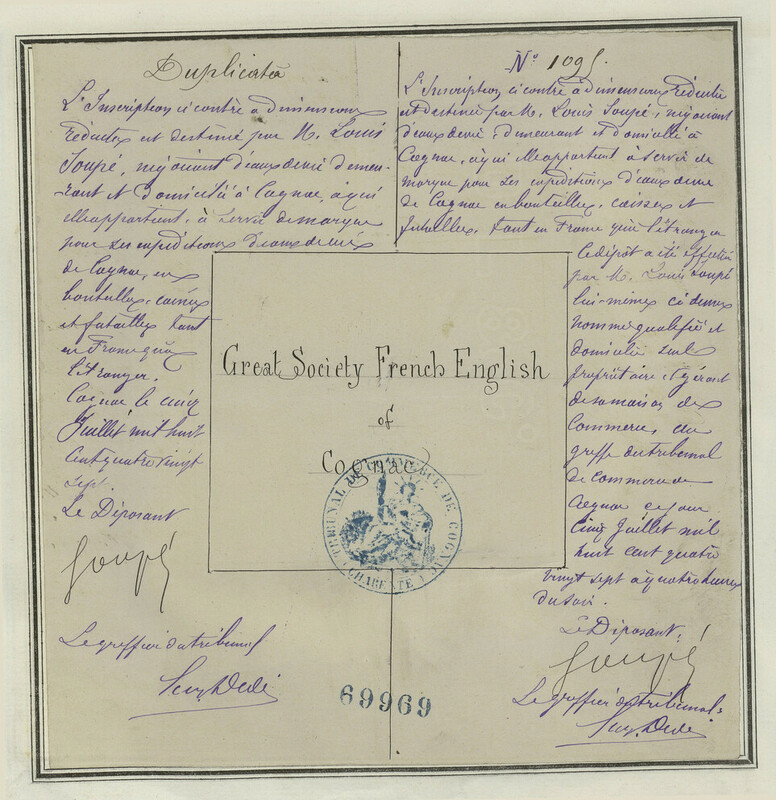 Duplicata
L'Inscription ci contre à dimensions
réduites est destinée par M. Louis
Soupé, négociant d'eaux de vie demeu-
rant et domicilié à Cognac, à qui
elle appartient, à servir de marque
pour ses expéditions d'eaux de vie
de Cognac, en
bouteilles, caisses
et futailles tant
en France qu'à
l'étranger.
Cognac le cinq
Juillet mil huit
cent quatre vingt
sept.
Le Déposant
Soupé
Le greffier du tribunal
Nº 1095.
L'Inscription ci contre à dimensions réduites
est destinée par M. Louis Soupé, négociant
d'eaux de vie, demeurant et domicilié à
Cognac, à qui elle appartient à servir de
marque pour ses expéditions d'eaux de vie
de Cognac en bouteilles, caisses et
futailles, tant en France qu'à l'étranger
Ce dépôt a été effectué
par M. Louis Soupé
lui-même ci dessus
nommé qualifié et
domicilié seul
propriétaire et gérant
de sa maison de
Commerce, au
greffe du tribunal
de commerce de
Cognac ce jour
cinq Juillet mil
huit cent quatre
vingt sept à quatre heures
du soir.
Le Déposant,
Soupé
Le greffier du tribunal,
Great Society French English
of
Cognac
TRIBUNAL DE COMMERCE DE COGNAC
(CHARENTE)
69969